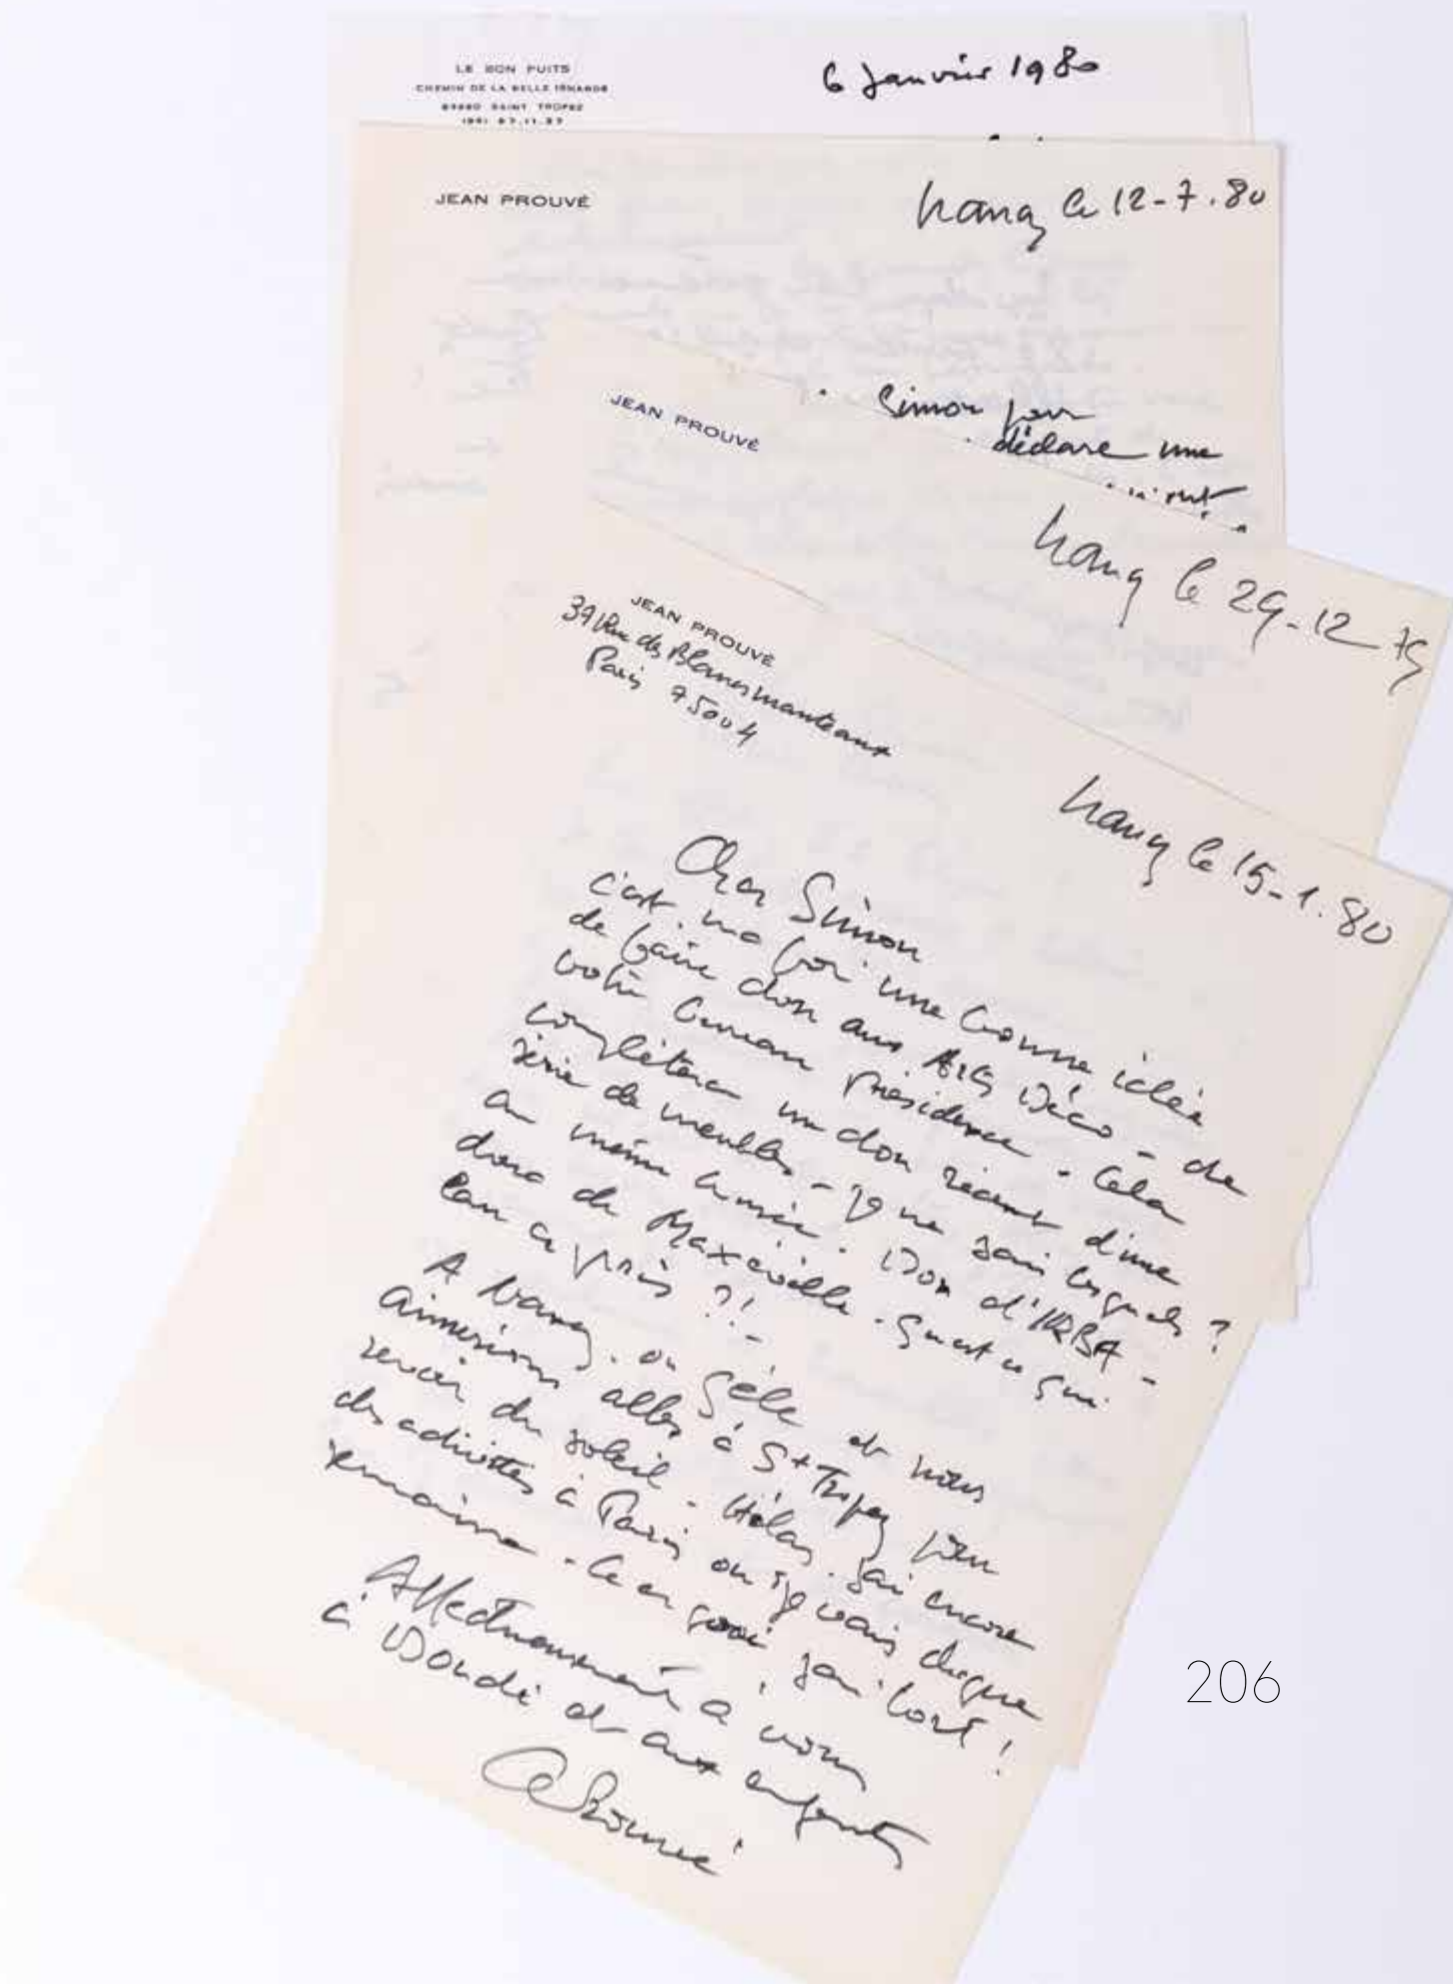 LE BON PUITS
CHEMIN DE LA BELLE ISNARDE
83990 SAINT TROPEZ
6 Janvier 1980
JEAN PROUVÉ
Nancy le 12-7.80
Simon pour
déclare une
JEAN PROUVÉ
Nancy le 29-12 79
JEAN PROUVÉ
39 Rue des Blancs manteaux
Paris 75004
Nancy le 15-1.80
Cher Simon
c'est ma foi une bonne idée
de faire don aux Arts Déco - de
votre bureau présidence. Cela
complètera un don récent d'une
série de meubles - je ne sais lesquels ?
au même musée. Don d'IRBA -
donc de Maxéville. Qu'est ce qui
l'en a pris ?! -
A Nancy. on gèle et nous
aimerions aller à St Tropez pour
revoir du soleil - Hélas. j'ai encore
des activités à Paris où je vais chaque
semaine - Ce en quoi j'ai tort !
Affectueusement à vous
à Doudi et aux enfants
Prouvé
206